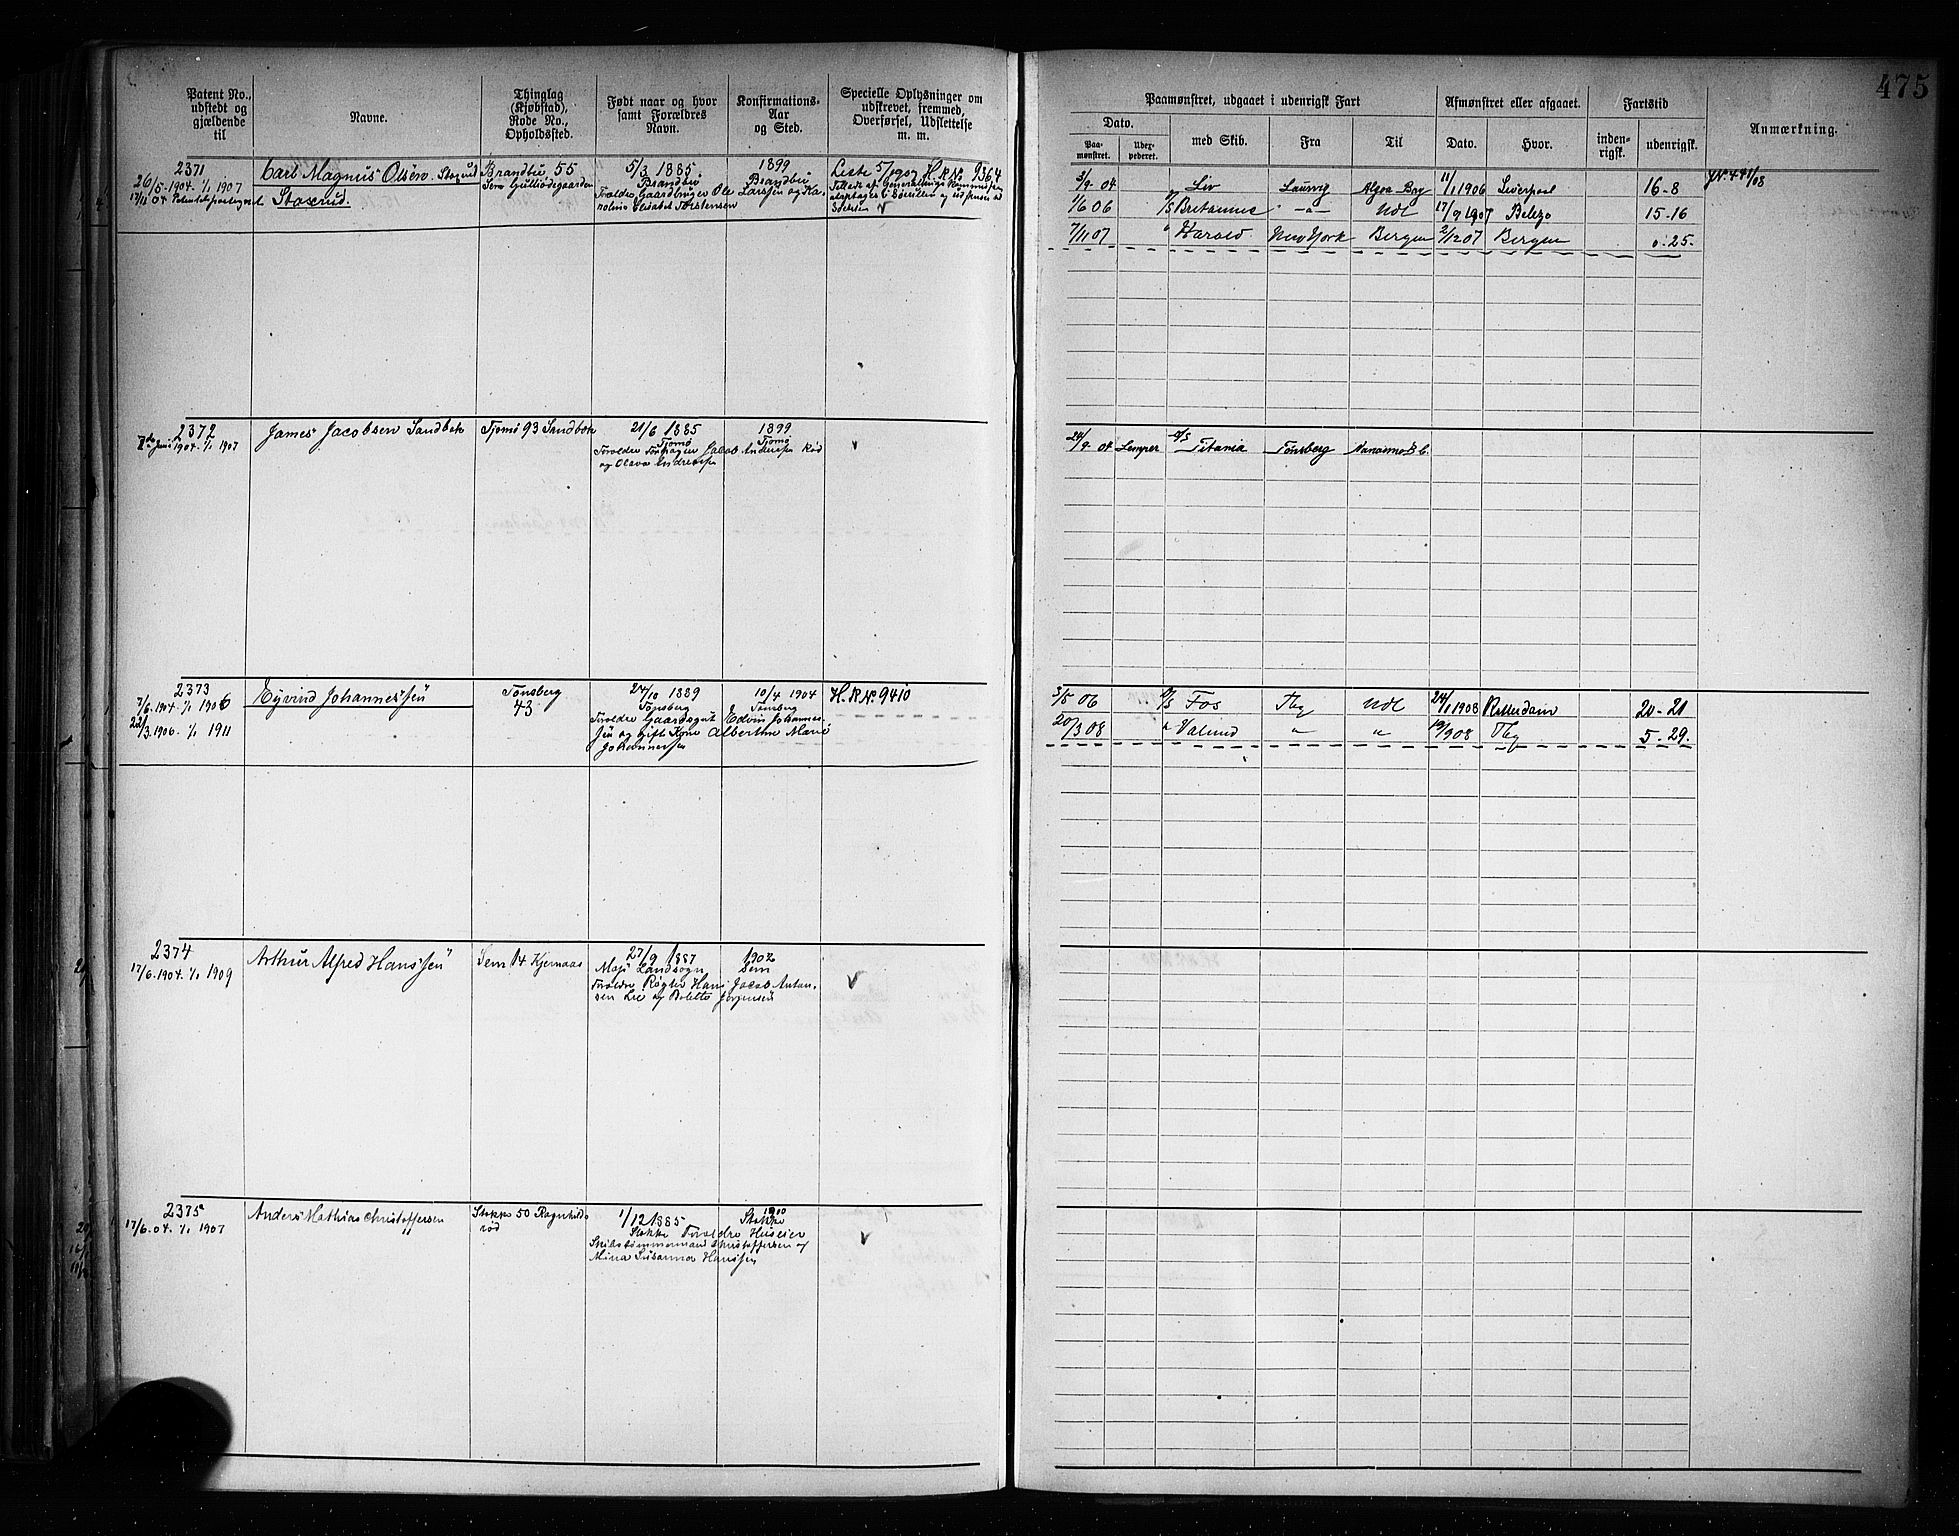 475
Patent No., udstedt og gjældende til
Navne.
Thinglag (Kjøbstad), Rode No., Opholdssted.
Født naar og hvor samt Forældres Navn.
Konfirmations-Aar og Sted.
Specielle Oplysninger om udskrevet, fremmed, Overførsel, Udslettelse m. m.
Paamønstret, udgaaet i udenrigsk Fart
Afmønstret eller afgaaet.
Fartstid
Anmærkning.
Dato.
Paamønstret.
Udexpederet.
med Skib.
Fra
Til
Dato.
Hvor.
indenrigsk.
udenrigsk.
2371
26/5-1904-1/1 1907
Carl Magnus Olsen
Brandbu 55
5/3 1885.
Brandbu
Forældre Gaardbruger Ole Larssen og Karoline Elisabet Torstensen
1899
Brandbu
Liste 5/1909 H.R.No. 9364
3/9 04 Liv Laurvig Algoa Bay 11/1 1906 Liverpool 16-8
1/6 06 Britannic -"- Udl 17/9 1907 15-16
7/11 07 " Harald New York Bergen 2/12 07 Bergen 0-25-
2372
1904-1/1 1907
James Jacobsen Sandbæk
Tjømø 93 Sandbæk
21/6 1885
Tjømø
Forældre Jacob Anderssen Rød
og Olava Andressen
1899
Tjømø
24/9 04 D/S Titania Tønsberg Nanaimo B.C.
2373
7/6-1904-1/1 1906
22/3 1906-1/1 1911
Eyvind Johannessen
Tønsberg
43
24/10 1889
Tønsberg
Forældre Gaardsgut Edvin Johannessen og gifte Kone Albertine Marie
Johannessen
10/4 1904
Tønsberg
H.R.No. 9410
3/5 06 D/S Fos Tbg Udl 24/1 1908 Rotterdam 20-21
20/3 08 " Valund " " 19/9 08 Tbg 5-29.
2374
17/6-1904-1/1 1909
Arthur Alfred Hanssen
Sem 14 Kjernaas
27/9 1887
Moss Landsogn
Forældre Røgter Hans Jacob Antonsen Lie og Bolette Jørgensen
1902
Sem
2375
17/6-04-1/1 1907
Anders Mathias Christoffersen
Stokke 50 Ragnhildsrød
1/12 1885
Stokke Forældre Huseier
Skibstømmermand Christoffersen og
Mina Susanna Hanssen
1900
Stokke